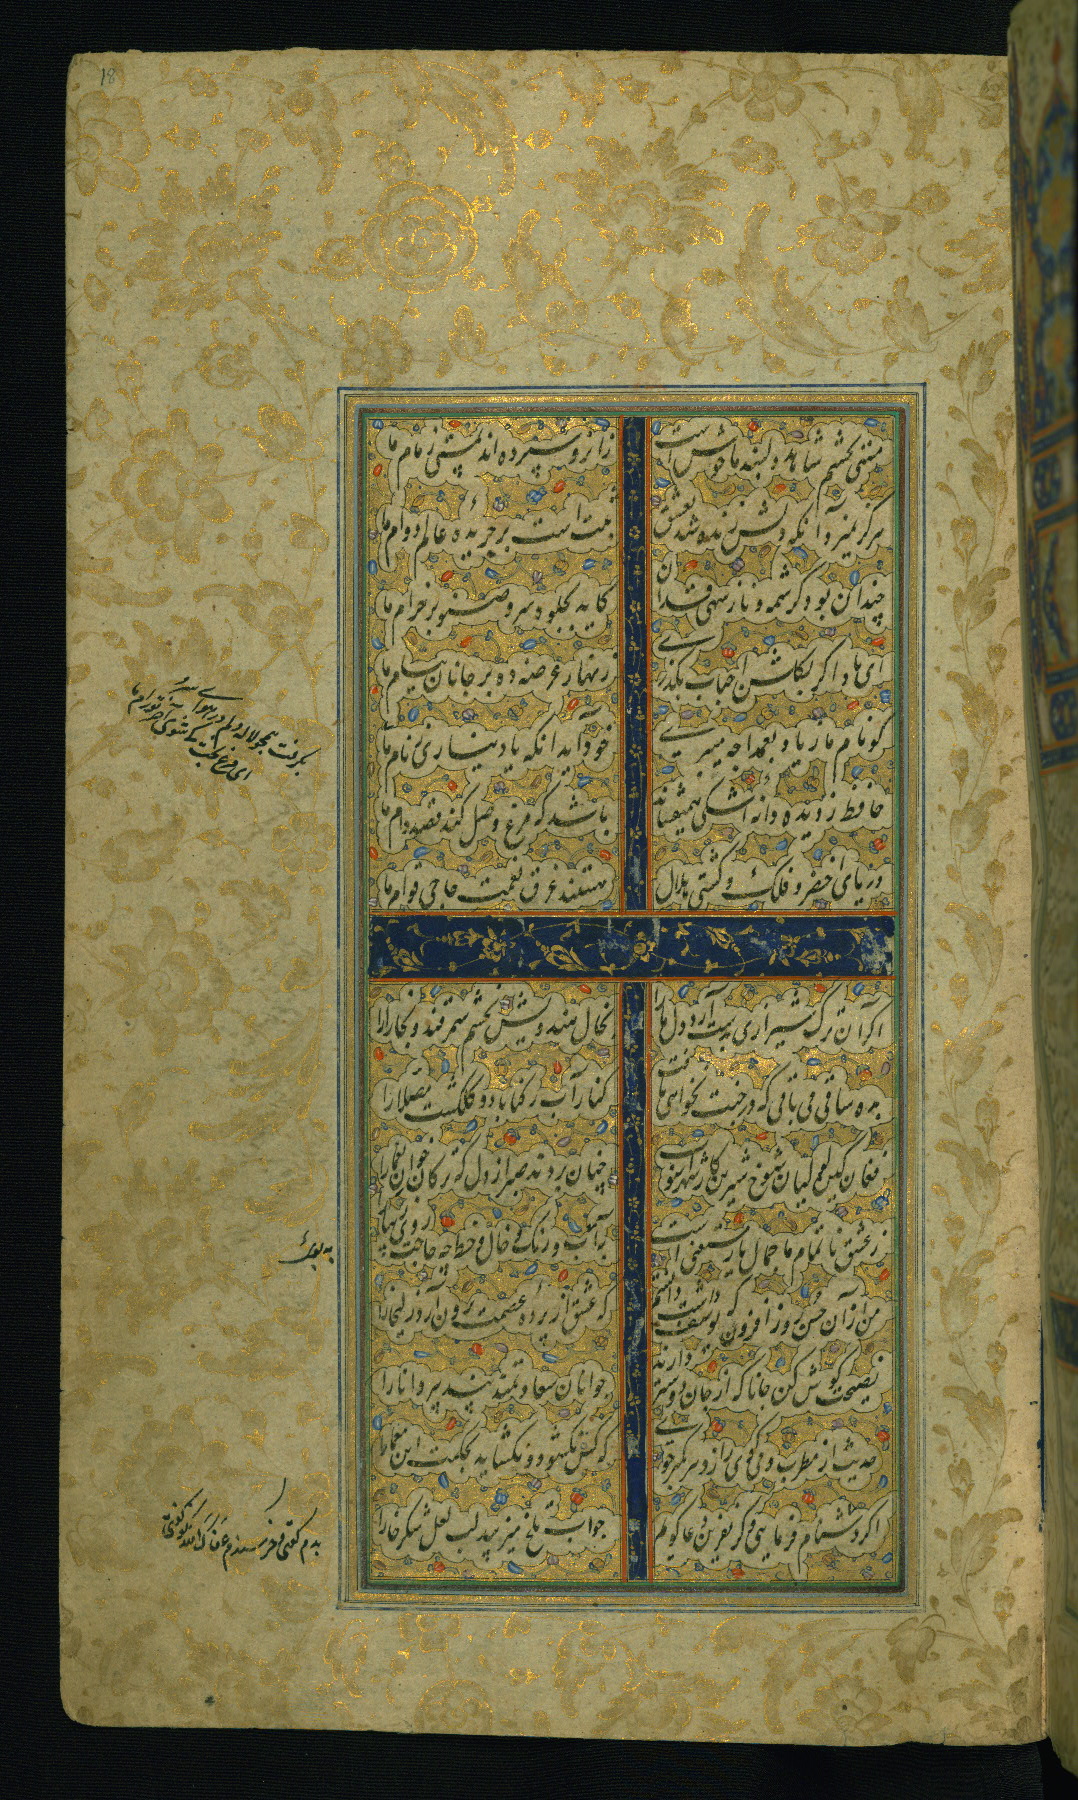 18
مستی بچشم شاهد دلبند ما خوش است
زانرو سپرده اند بمستی زمام ما
هرگز نمیرد آنکه دلش زنده شد بعشق
ثبت است بر جریدهٔ عالم دوام ما
چندان بود کرشمه و ناز سهی قدان
کاید بجلوه سرو صنوبر خرام ما
ای باد اگر بگلشن احباب بگذری
زنهار عرضه ده بر جانان پیام ما
گو نام ما ز یاد بعمدا چه میبری
خود آید آنکه یاد نیاری ز نام ما
حافظ ز دیده دانهٔ اشکی همی‌فشان
باشد که مرغ وصل کند قصد دام ما
دریای اخضر و فلک و کشتی هلال
هستند غرق نعمت حاجی قوام ما
بگرفت همچو لاله دلم در هوای سرو
ای مرغ بخت کی شوی آخر تو رام ما
اگر آن ترک شیرازی بدست آرد دل ما را
بخال هندویش بخشم سمرقند و بخارا را
بده ساقی می باقی که در جنت نخواهی یافت
کنار آب رکناباد و گلگشت مصلا را
فغان کین لولیان شوخ شیرین کار شهر آشوب
چنان بردند صبر از دل که ترکان خوان یغما را
ز عشق ناتمام ما جمال یار مستغنی است
به آب و رنگ و خال و خط چه حاجت روی زیبا را
من از آن حسن روز افزون که یوسف داشت دانستم
که عشق از پردهٔ عصمت برون آرد زلیخا را
نصیحت گوش کن جانا که از جان دوستتر دارند
جوانان سعادتمند پند پیر دانا را
حدیث از مطرب و می گوی و راز دهر کمتر جو
که کس نگشود و نگشاید بحکمت این معما را
اگر دشنام فرمایی و گر نفرین دعا گویم
جواب تلخ میزیبد لب لعل شکرخا را
بدم گفتی و خرسندم عفاک الله نکو گفتی